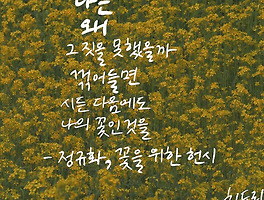 나는
왜
그 짓을 못했을까
꺾어들면
시든 다음에도
나의 꽃인것을
- 정규화, 꽃을 위한 헌시